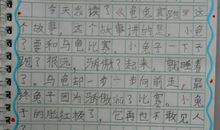 今天我读了《龟兔赛跑》的
故事。这个故事讲的是，小兔
子要和乌龟比赛。小兔子一下子
跑了很远，骄傲了起来，就睡着
了。乌龟却一步一步向前走，最
小兔子因为骄傲输了比赛。小兔
子的脸红极了，它再也不敢见人